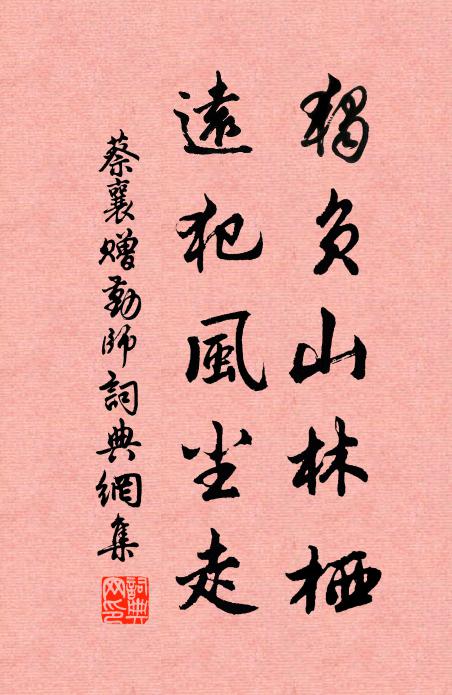 獨負山林栖
遠犯風尘走
蔡襄贈勤師詞典網集
詞典網印